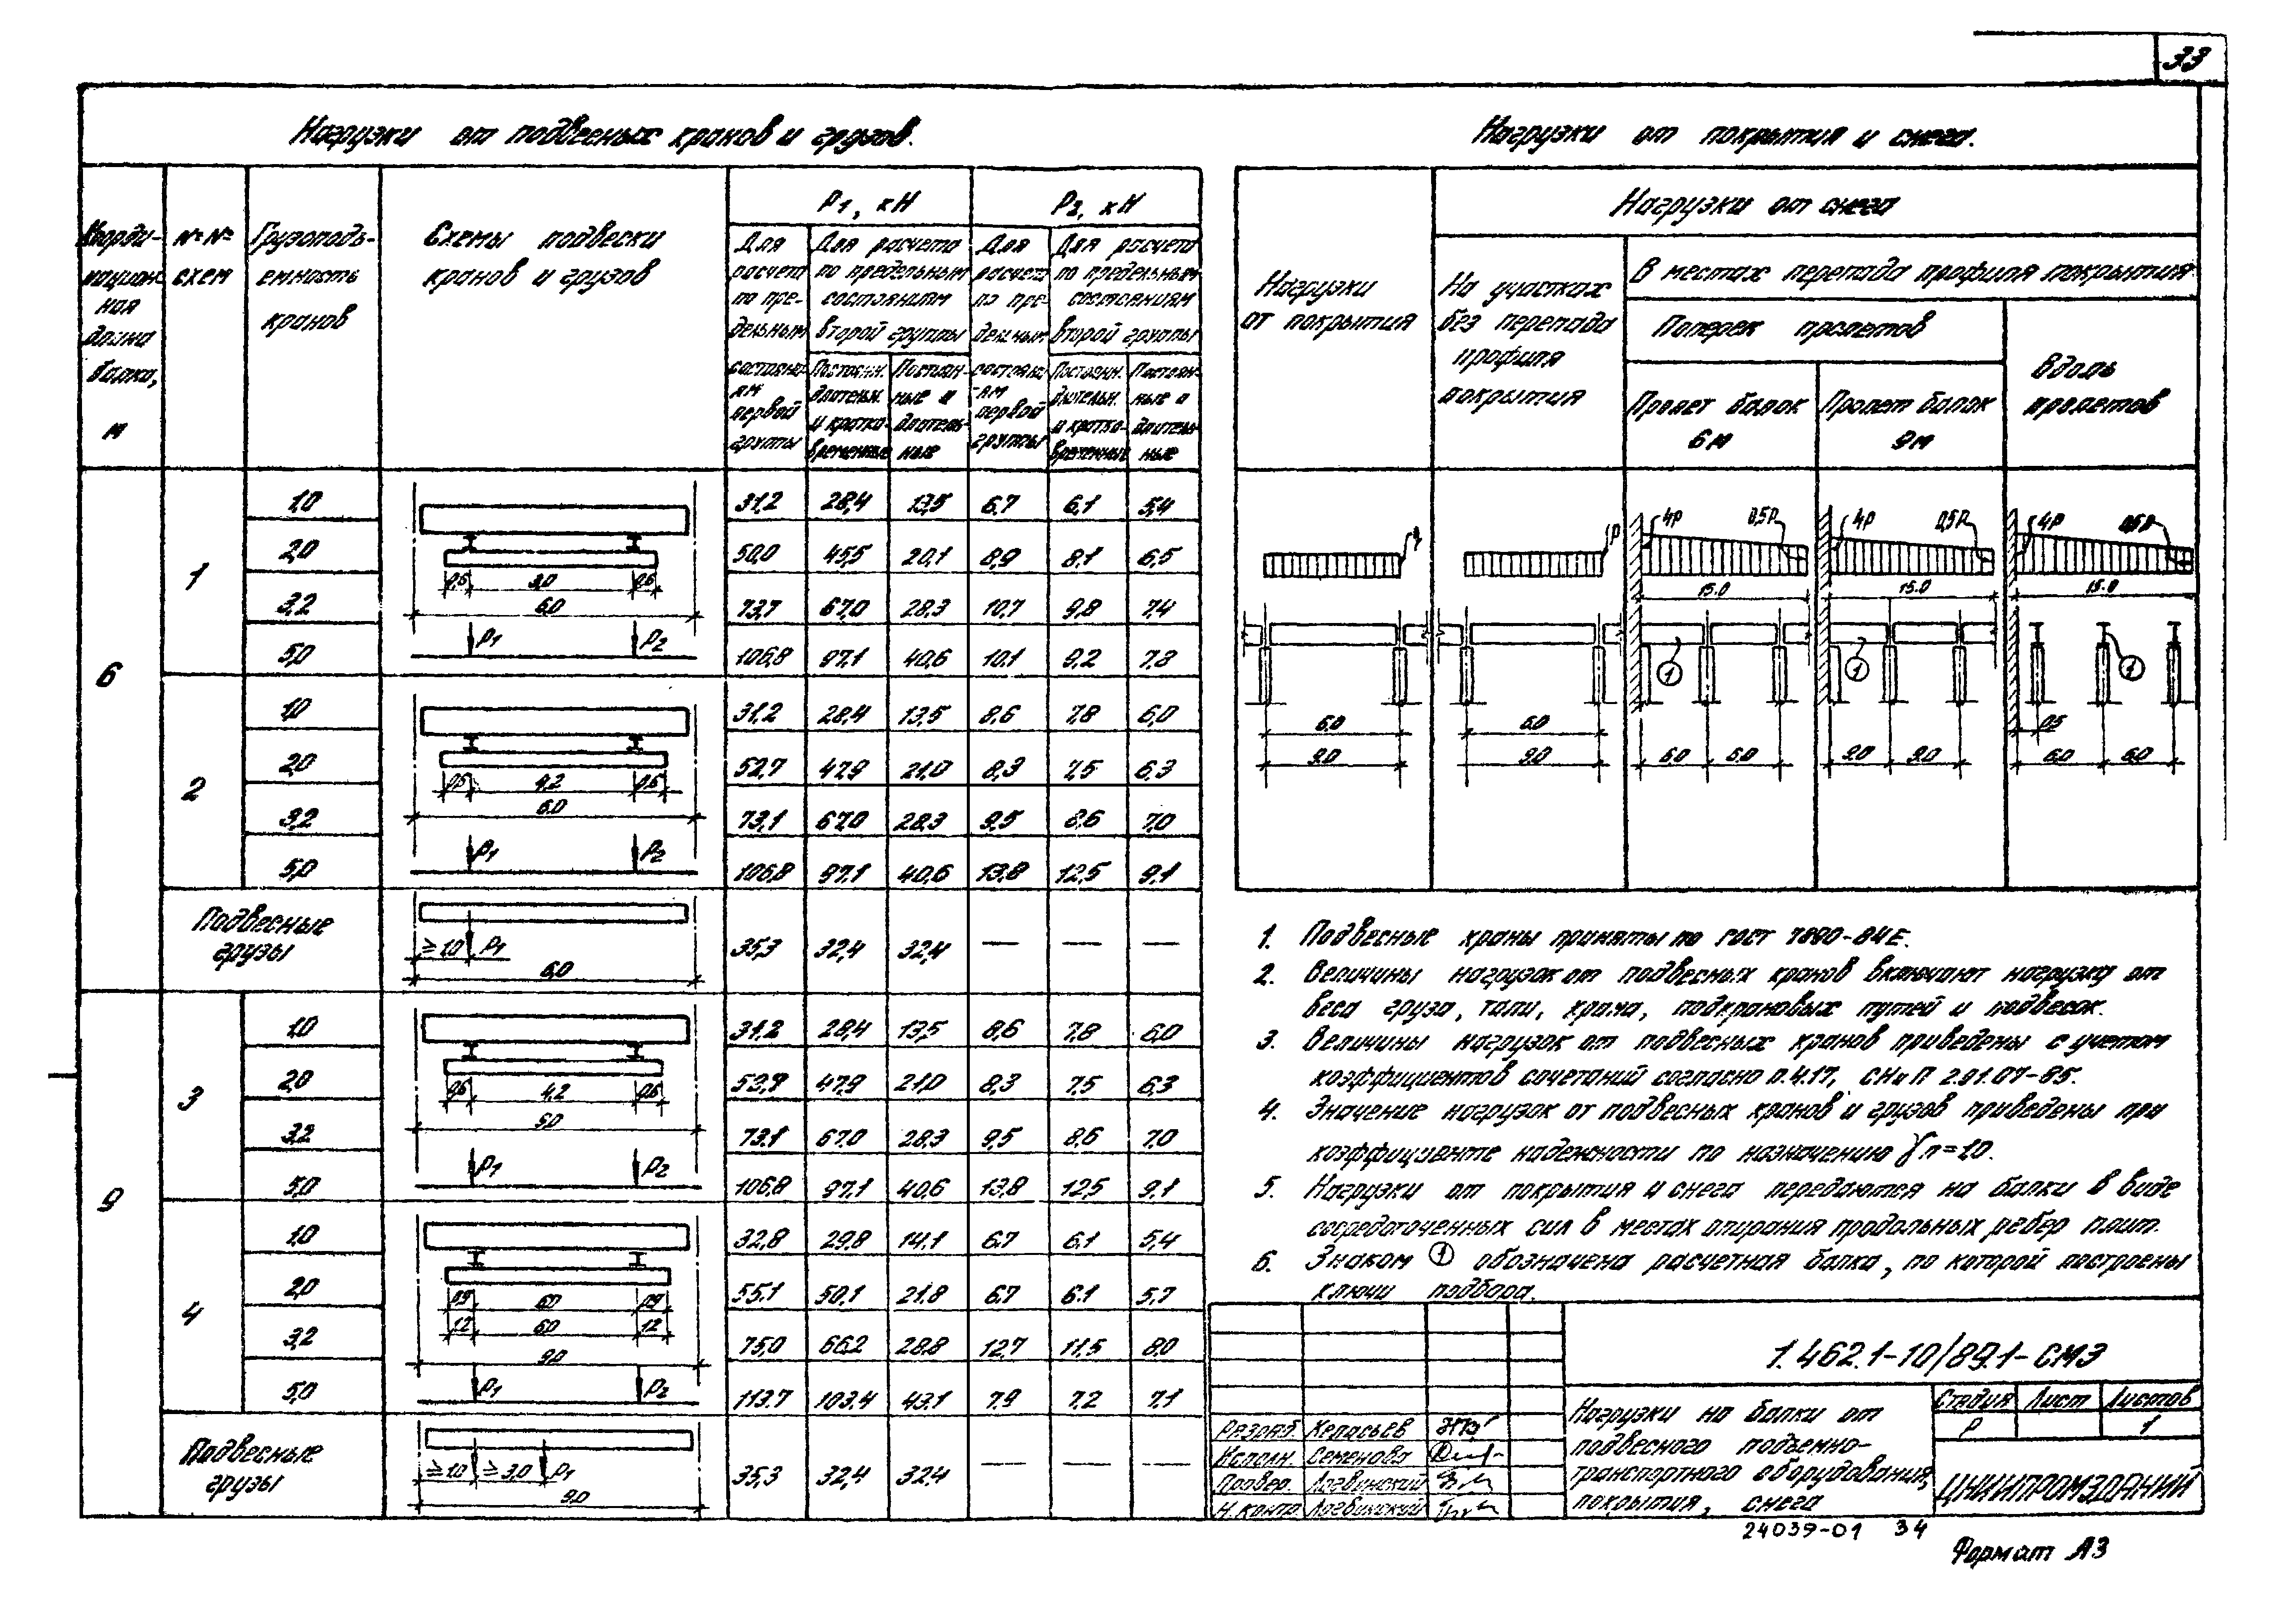 33
Нагрузки от подвесных кранов и грузов.
Нагрузки от покрытия и снега.
Координационная длина балки, м
№№ схем
Грузоподъемность кранов
Схемы подвески кранов и грузов
P1, кН
P2, кН
Для расчета по предельным состояниям первой группы
Для расчета по предельным состояниям второй группы
Постоянн. длительн. и кратковременные
Постоянные и длительные
Для расчета по предельным состояниям первой группы
Для расчета по предельным состояниям второй группы
Постоянн. длительн. и кратковременные
Постоянные и длительные
6
1
1,0 31,2 28,4 13,5 6,7 6,1 5,4
2,0 50,0 45,5 20,1 8,9 8,1 6,5
3,2 73,7 67,0 28,3 10,7 9,8 7,4
5,0 106,8 97,1 40,6 10,1 9,2 7,3
0,6 3,0 0,6
6,0
P1 P2
2
1,0 31,2 28,4 13,5 8,6 7,8 6,0
2,0 52,7 47,9 21,0 8,3 7,5 6,3
3,2 73,1 67,0 28,3 9,5 8,6 7,0
5,0 106,8 97,1 40,6 13,8 12,5 9,1
0,6 4,2 0,6
6,0
P1 P2
Подвесные грузы
≥1,0 P1
6,0
35,3 32,4 32,4 — — —
9
3
1,0 31,2 28,4 13,5 8,6 7,8 6,0
2,0 52,7 47,9 21,0 8,3 7,5 6,3
3,2 73,1 67,0 28,3 9,5 8,6 7,0
5,0 106,8 97,1 40,6 13,8 12,5 9,1
0,6 4,2 0,6
P1 P2
4
1,0 32,8 29,8 14,1 6,7 6,1 5,4
2,0 55,1 50,1 21,8 6,7 6,1 5,7
3,2 75,0 66,2 28,8 12,7 11,5 8,0
5,0 113,7 103,4 43,1 7,9 7,2 7,1
0,9 6,0 0,9
1,2 6,0 1,2
9,0
P1 P2
Подвесные грузы
≥1,0 ≥3,0 P1
9,0
35,3 32,4 32,4 — — —
Нагрузки от покрытия
Нагрузки от снега
На участках без перепада профиля покрытия
В местах перепада профиля покрытия
Поперек пролетов
Вдоль пролетов
Пролет балок 6м
Пролет балок 9м
q p 4p 0,5p 4p 0,5p 4p 0,5p
15.0 15.0 15.0
1 1 1
6,0 6,0 0,5
9,0 9,0 6,0 6,0 9,0 9,0 6,0 6,0
1. Подвесные краны приняты по ГОСТ 7890-84Е.
2. Величины нагрузок от подвесных кранов включают нагрузку от
веса груза, тали, крана, подкрановых путей и подвесок.
3. Величины нагрузок от подвесных кранов приведены с учетом
коэффициентов сочетаний согласно п.4.17, СНиП 2.01.07-85.
4. Значение нагрузок от подвесных кранов и грузов приведены при
коэффициенте надежности по назначению γn=1,0.
5. Нагрузки от покрытия и снега передаются на балки в виде
сосредоточенных сил в местах опирания продольных ребер плит.
6. Знаком 1 обозначена расчетная балка, по которой построены
ключи подбора.
1.462.1-10/89.1-СМ3
Нагрузки на балки от
подвесного подъемно-
транспортного оборудования,
покрытия, снега
Стадия Лист Листов
Р 1
ЦНИИПРОМЗДАНИЙ
Разраб.
Исполн. Семенова
Провер. Логвинский
Н.контр. Логвинский
24039-01 34
Формат А3